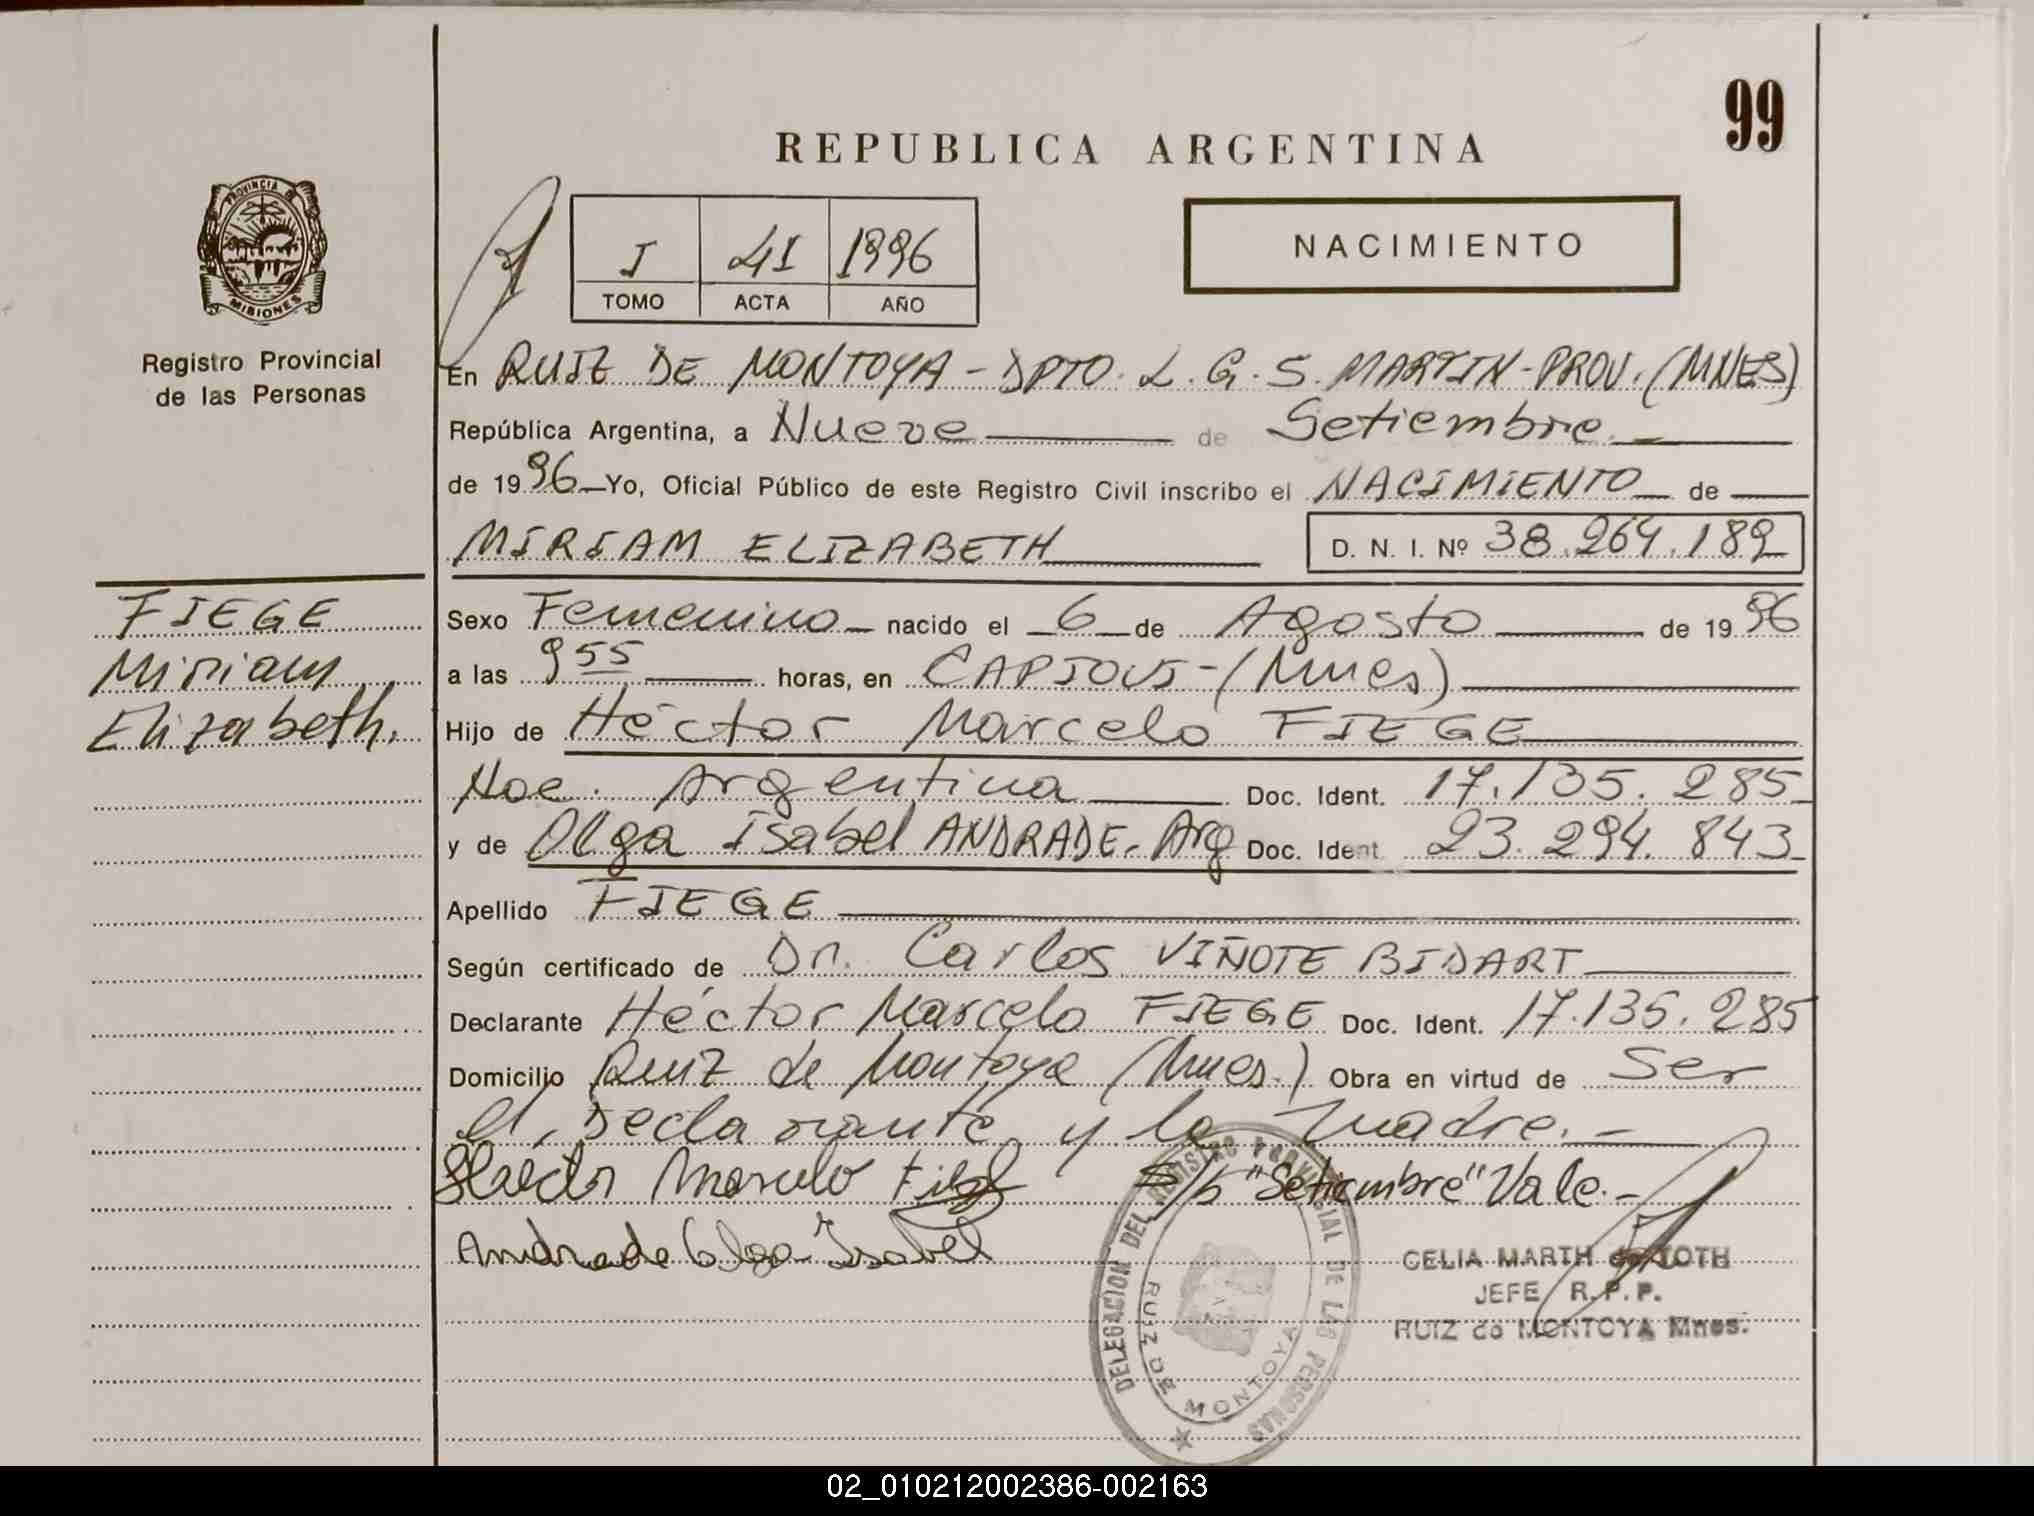 99
REPUBLICA ARGENTINA
PROVINCIA DE
MISIONES
Registro Provincial
de las Personas
I 41 1996
TOMO ACTA AÑO
NACIMIENTO
En RUIZ DE MONTOYA - DPTO. L. G. S. MARTIN - PROV. (MNES)
República Argentina, a Nueve de Setiembre.
de 1996 Yo, Oficial Público de este Registro Civil inscribo el NACIMIENTO de
MIRIAM ELIZABETH D. N. I. Nº 38.264.189
FIEGE
Miriam
Elizabeth.
Sexo Femenino nacido el 6 de Agosto de 1996
a las 9 55 horas, en CAPIOVI - (Mnes)
Hijo de Héctor Marcelo FIEGE
Noc. Argentina Doc. Ident. 17.135.285
y de Olga Isabel ANDRADE. Arg Doc. Ident 23.294.843
Apellido FIEGE
Según certificado de Dr. Carlos VIÑOTE BIDART
Declarante Héctor Marcelo FIEGE Doc. Ident. 17.135.285
Domicilio Ruiz de Montoya (Mnes.) Obra en virtud de Ser
el, Declarante y la Madre. -
Héctor Marcelo S/b "Setiembre" Vale. -
Andrade Olga Isabel
DELEGACION DEL REGISTRO PROVINCIAL DE LAS PERSONAS
RUIZ DE MONTOYA
CELIA MARTH de TOTH
JEFE R. P. P.
RUIZ de MONTOYA Mnes.
02_010212002386-002163